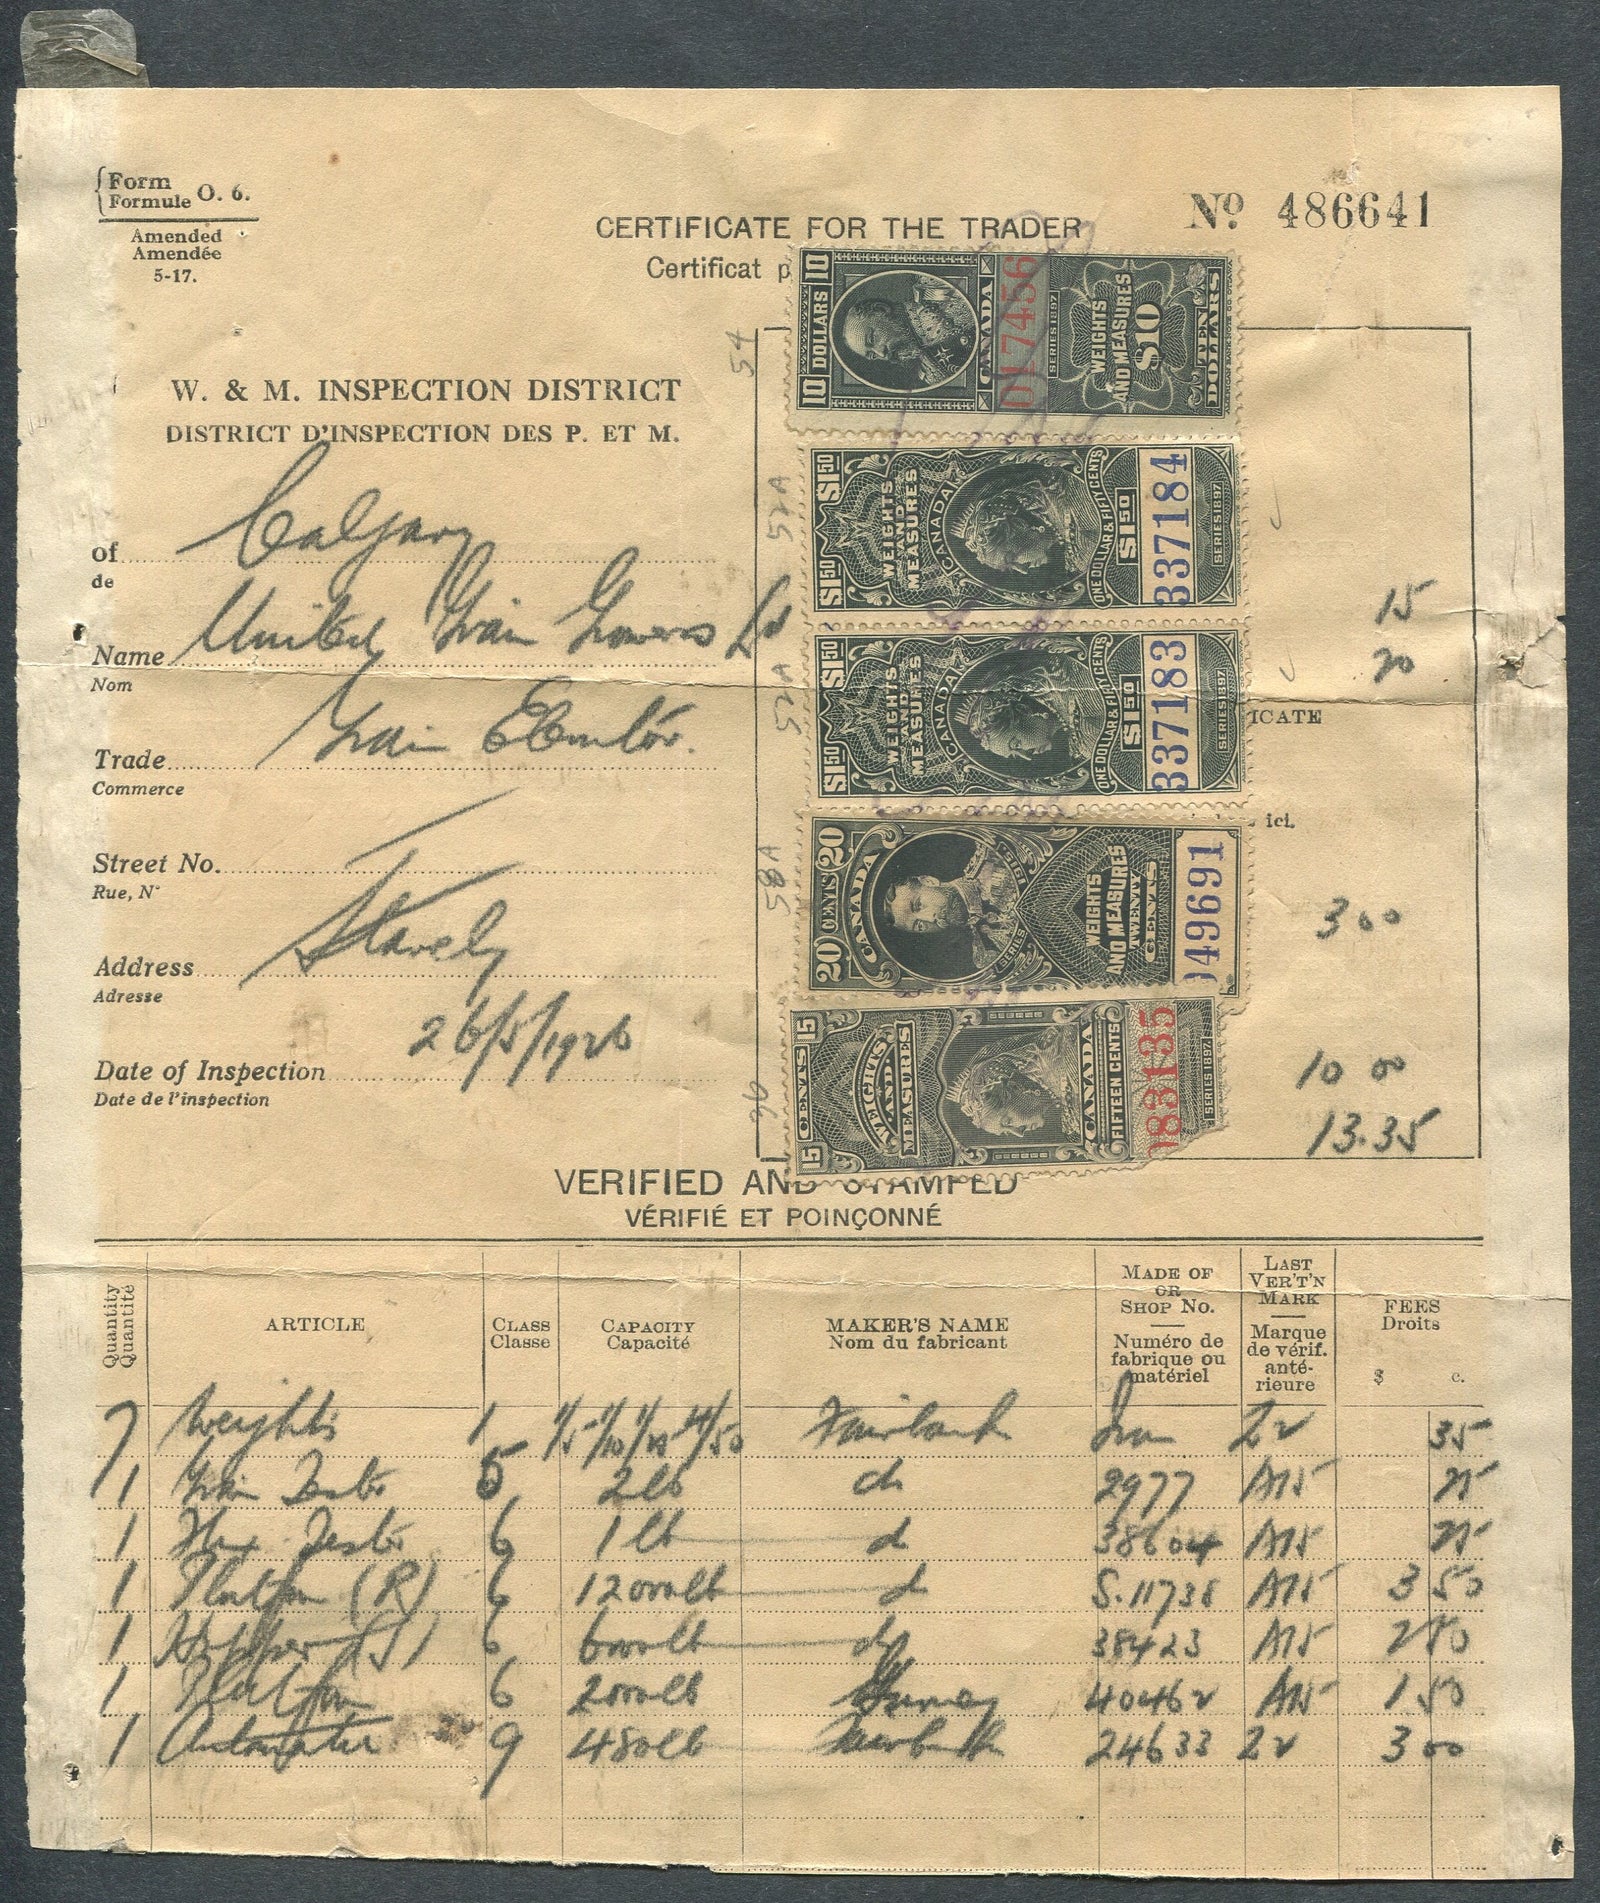 Form
Formule O. 6.
Amended
Amendée
5-17.
Nº 486641
CERTIFICATE FOR THE TRADER
Certificat p
W. & M. INSPECTION DISTRICT
DISTRICT D'INSPECTION DES P. ET M.
of Calgary
de
Name United Grain Growers Ltd
Nom
Trade Grain Elevator.
Commerce
Street No.
Rue, Nº
Address Stavely
Adresse
Date of Inspection 26/5/1926
Date de l'inspection
54
10 DOLLARS 10
CANADA
017456
SERIES 1897
WEIGHTS
AND MEASURES
$10
TEN
DOLLARS
52A
$1.50 $1.50
WEIGHTS
AND
MEASURES
CANADA
ONE DOLLAR & FIFTY CENTS
$1.50
337184
SERIES 1897
52A
$1.50 $1.50
WEIGHTS
AND
MEASURES
CANADA
ONE DOLLAR & FIFTY CENTS
$1.50
337183
SERIES 1897
58A
20 CENTS 20
CANADA
SERIES 1915
WEIGHTS
AND MEASURES
TWENTY
CENTS
49691
36
15 CENTS 15
WEIGHTS
AND
MEASURES
CANADA
FIFTEEN CENTS
83135
SERIES 1897
15
20
ICATE
ici.
3 00
10 00
13.35
VERIFIED AND STAMPED
VÉRIFIÉ ET POINÇONNÉ
Quantity
Quantité
ARTICLE
CLASS
Classe
CAPACITY
Capacité
MAKER'S NAME
Nom du fabricant
MADE OF
OR
SHOP NO.
Numéro de
fabrique ou
matériel
LAST
VER'T'N
MARK
Marque
de vérif.
anté-
rieure
FEES
Droits
$ c.
7 Weights 1 1/5 1/10 1/25 4/50 Fairbank Iron Z2 35
1 Grain Tester 5 2 lb do 2977 A15 25
1 Flax Tester 6 1 lb d 38604 A15 25
1 Platform (R) 6 12000 lb d S.11738 A15 3 50
1 Hopper (S) 6 6000 lb d 38423 A15 2 50
1 Platform 6 2000 lb Gurney 40462 A15 1 50
1 Automatic 9 480 lb Fairbank 24633 Z2 3 00